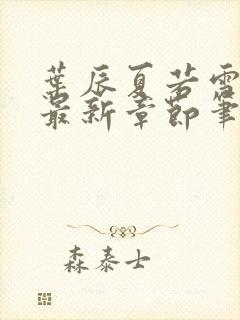 葉辰夏若雪
最新章節筆
森泰士